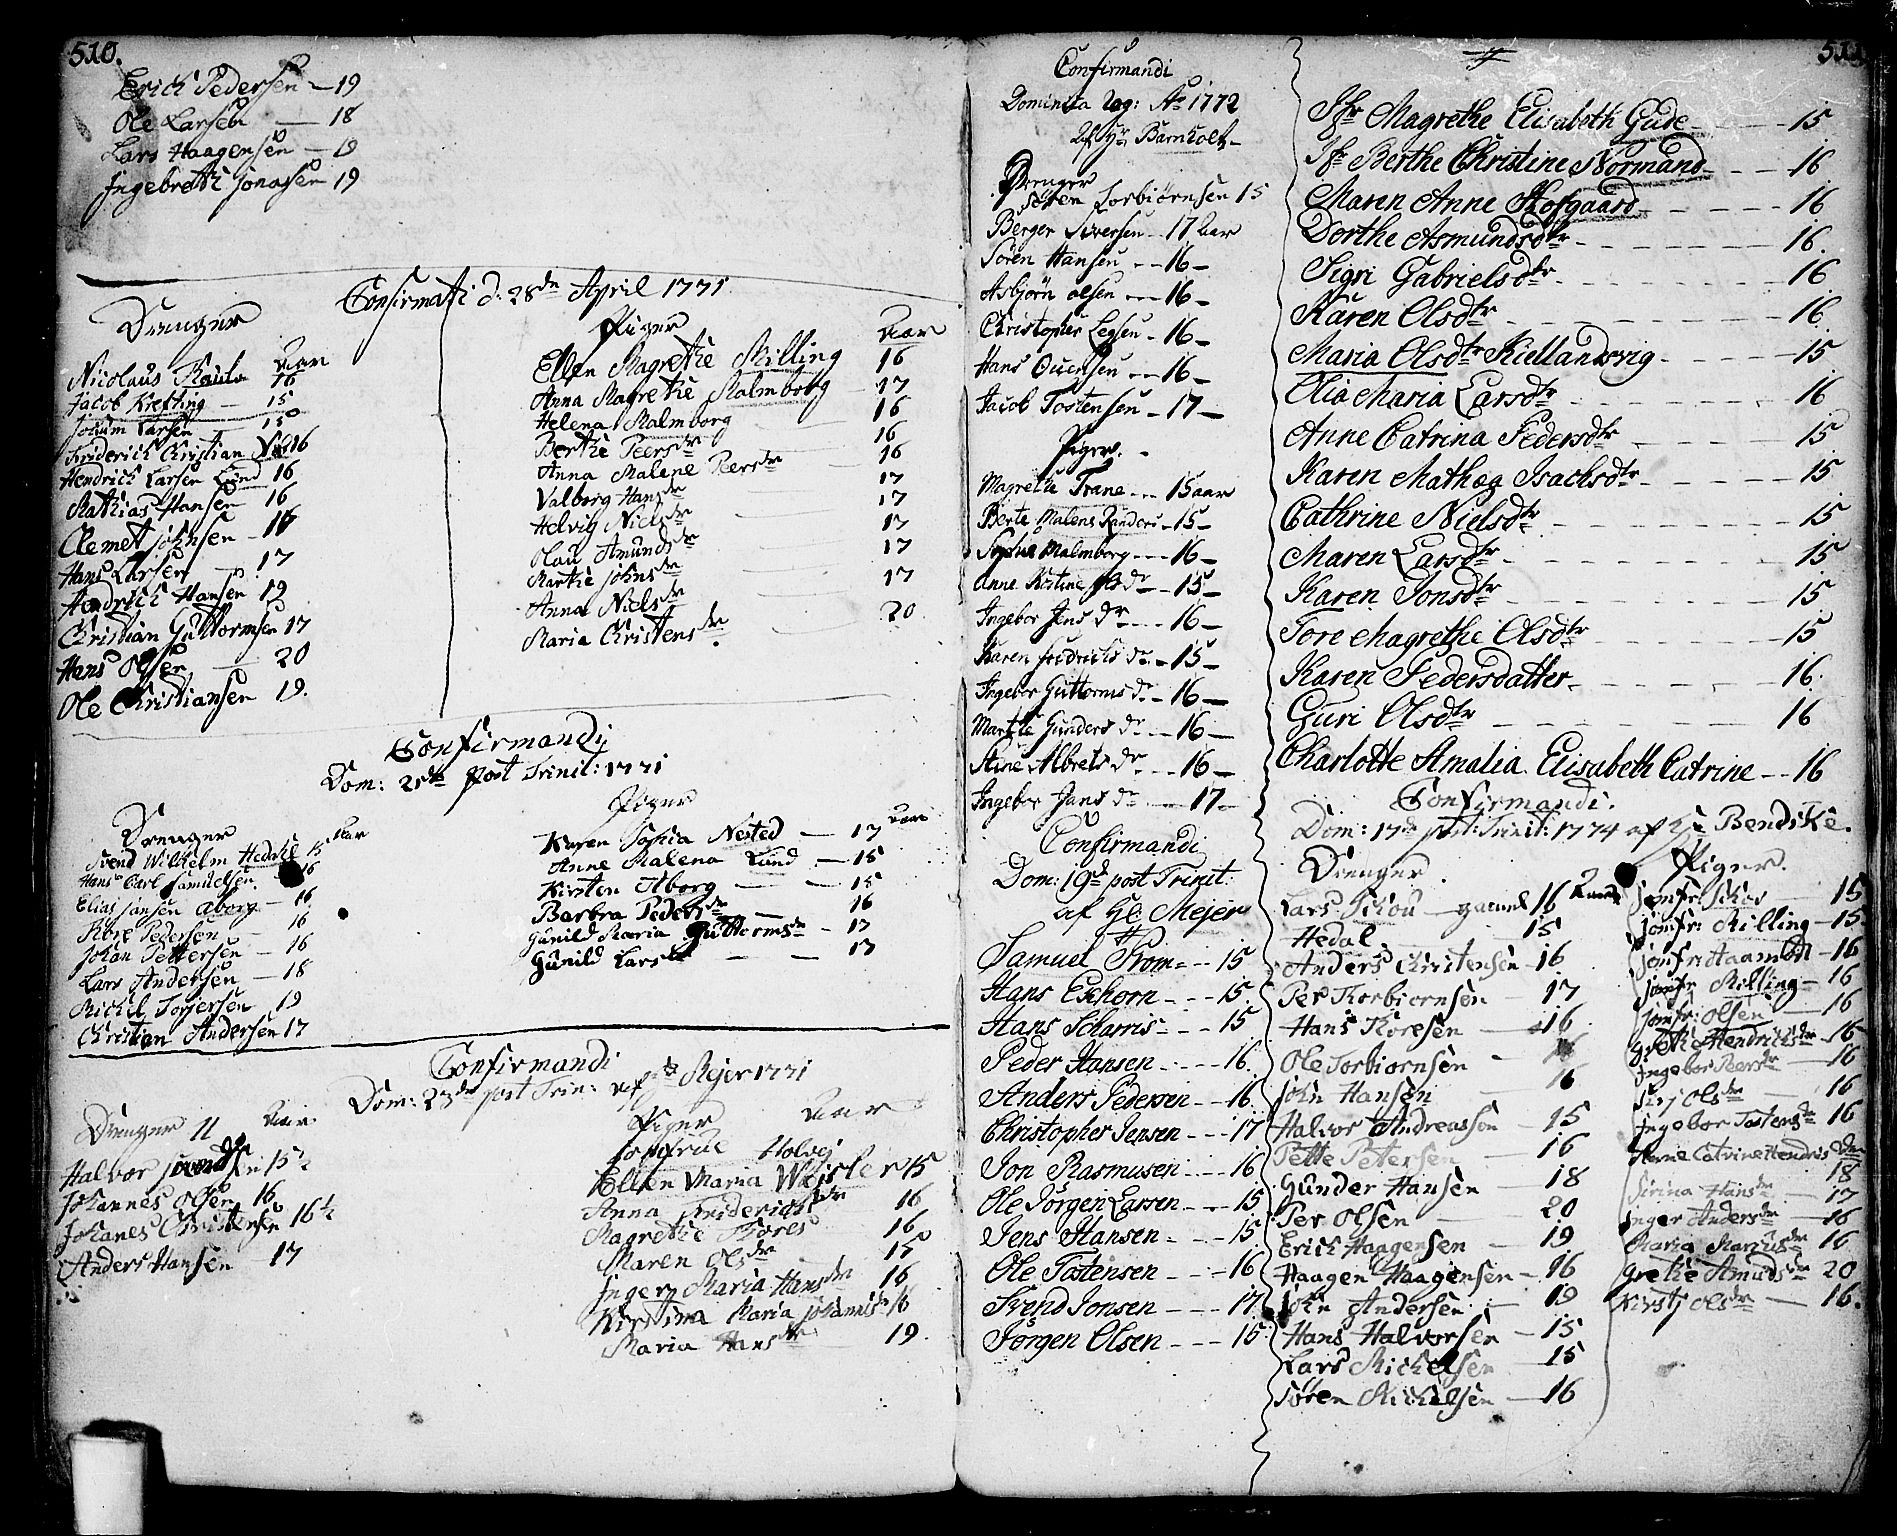 510.
Erich Pedersen - 19
Ole Larsen - 18
Lars Haagensen - 19
Ingebreth Jonasen 19
Confirmati d: 28de April 1771
Drenger
Aar
Nicolaus 16
Jacob Krefting - 15
Jokum Larsen - 15
Friderich Christian 16
Hendrich Larsen Lund 16
Mathias Hansen 16
Clemet Johnsen - 16
Hans Larsen - 17
Hendrich Hansen 19
Christian Guttormsen 17
Hans Olsen - 20
Ole Christiansen 19.
Piger
Aar
Ellen Magrethe Milling 16
Anna Magrethe Malmborg - 17
Helena Malmborg 16
Berthe Peersdr 16
Anna Malene Peersdr 16
Valborg Hansdr 17
Helvig Nielsdr 17
Olau Amundsdr 17
Marthe Johnsdr 17
Anna Nielsdr 17
Maria Christensdr. 20
Confirmandi
Dom: 21de post Trinit: 1771
Drenger
Aar
Svend Wilhelm Hedahl 15
Hans Carl Samuelsen. 16
Elias Jansen Aborg - 16
Tore Pedersen - 16
Johan Pettersen - 16
Lars Andersen - 18
Michel Torjersen 19
Christian Andersen 17
Piger
Aar
Karen Sophia Nested - 17
Anne Malena Lund - 15
Kirsten Aborg - 15
Barbra Pedersdr - 16
Gunild Maria Guttormsdr - 17
Gunild Larsdr - 17
Confirmandi
Dom: 23de post Trin: af Mejer 1771
Drenger 11
Aar
Halvor Svendsen 15½
Johannes Olsen 16
Johanes Christensen 16½
Anders Hansen - 17
Piger
Aar
Jomfrue Holvej
Ellen Maria Weisler 15
Anna Fridrichsdr 16
Magrethe Thores 16
Maren Olsdr 15
Inger Maria Hansdr 16
Kirstina Maria Johannesdr 16
Maria Hansdr 19.
Confirmandi
Ao 1772
af Hr Barnholt
Drenger
Søren Torbiørnsen 15
Berger Siversen - 17 Aar
Søren Hansen - 16 -
Asbjørn Olsen - 16 -
Christopher Legsen - 16 -
Hans Ouensen - 16 -
Jacob Tostensen - 17 -
Piger.
Magrethe Trane - 15 aar
Berte Malena Randers - 15 -
Sophia Malmborg - 16 -
Anne Kirstine dr - 15 -
Ingebor Jens dr - 16 -
Karen Fridrichs dr - 15 -
Ingebor Guttorms dr - 16 -
Marthe Gunders dr - 16 -
Stine Albrets dr - 16 -
Ingebor Jans dr - 17 -
Confirmandi
Dom: 19de post Trinit:
af Hr Mejer
Samuel From - 15
Hans Eschorn - 15.
Hans Scharris - 15.
Peder Hansen - 16.
Anders Pedersen - 16.
Christopher Jensen - 17
Jon Rasmusen - 16
Ole Jørgen Larsen - 15
Jens Hansen - 15
Ole Tostensen - 16
Svend Jonsen - 17
Jørgen Olsen - 15
511
Jfr Magrethe Elisabeth Gude - 15
Jfr Berthe Christine Normand - 16
Maren Anne Hofgaard - 16
Dorthe Asmundsdtr - 16.
Sigri Gabrielsdtr - 16
Karen Olsdtr - 16
Maria Olsdtr Kiellandsvig - 15
Olia Maria Larsdtr - 16
Anne Catrina Pedersdtr - 15
Karen Mathea Isachsdtr - 15
Cathrine Nielsdtr - 15
Maren Larsdtr - 15
Karen Jonsdtr - 15
Tore Magrethe Olsdtr - 15
Karen Pedersdatter - 16.
Guri Olsdtr - 16
Charlotte Amalia Elisabeth Catrine - 16
Confirmandi.
Dom: 17de post: Trinit: 1774 af Hr Bendike.
Drenger.
Lars Schou - gammel 16 Aar
Hedal - 15
Anders Christensen - 16
Per Torbiornsen - 17
Hans Toresen - 16
Ole Torbiornsen - 16
John Hansen - 16
Halvor Andreassen - 15
Pette Petersen - 16
Gunder Hansen 18
Per Olsen - 20
Erich Haagensen - 19
Haagen Haagensen - 16
John Andersen - 19
Hans Halvorsen - 15
Lars Michelsen - 15
Søren Michelsen - 16
Piger.
Jomfr: Schou - 15
Jomfr: Milling - 15
Jomfr: Haamon - 16
Jomfr: Milling - 16
Jomfr: Olsen - 16
Grethe Hendrichsdr - 16
Ingebor Peersdr - 16
Sirj Olsdr - 16
Ingebor Tostensdr - 16
Anne Catrine Hendrichsdr
18
Sirina Hansdr - 17
Inger Andersdr - 16
Maria Mariusdr 16
Grethe Amundsdr 20
Kirstj Olsdr - 16.